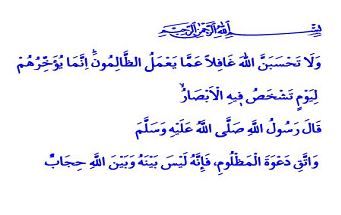 بسم الله الرحمن الرحيم
وَلَا تَحْسَبَنَّ اللّٰهَ غَافِلاً عَمَّا يَعْمَلُ الظَّالِمُونَۜ اِنَّمَا يُؤَخِّرُهُمْ
لِيَوْمٍ تَشْخَصُ فٖيهِ الْاَبْصَارُۙ
قَالَ رَسُولُ اللَّهِ صَلَّى اللَّهُ عَلَيْهِ وَسَلَّمَ
وَاتَّقِ دَعْوَةَ الْمَظْلُومِ، فَإِنَّهُ لَيْسَ بَيْنَهُ وَبَيْنَ اللَّهِ حِجَابٌ